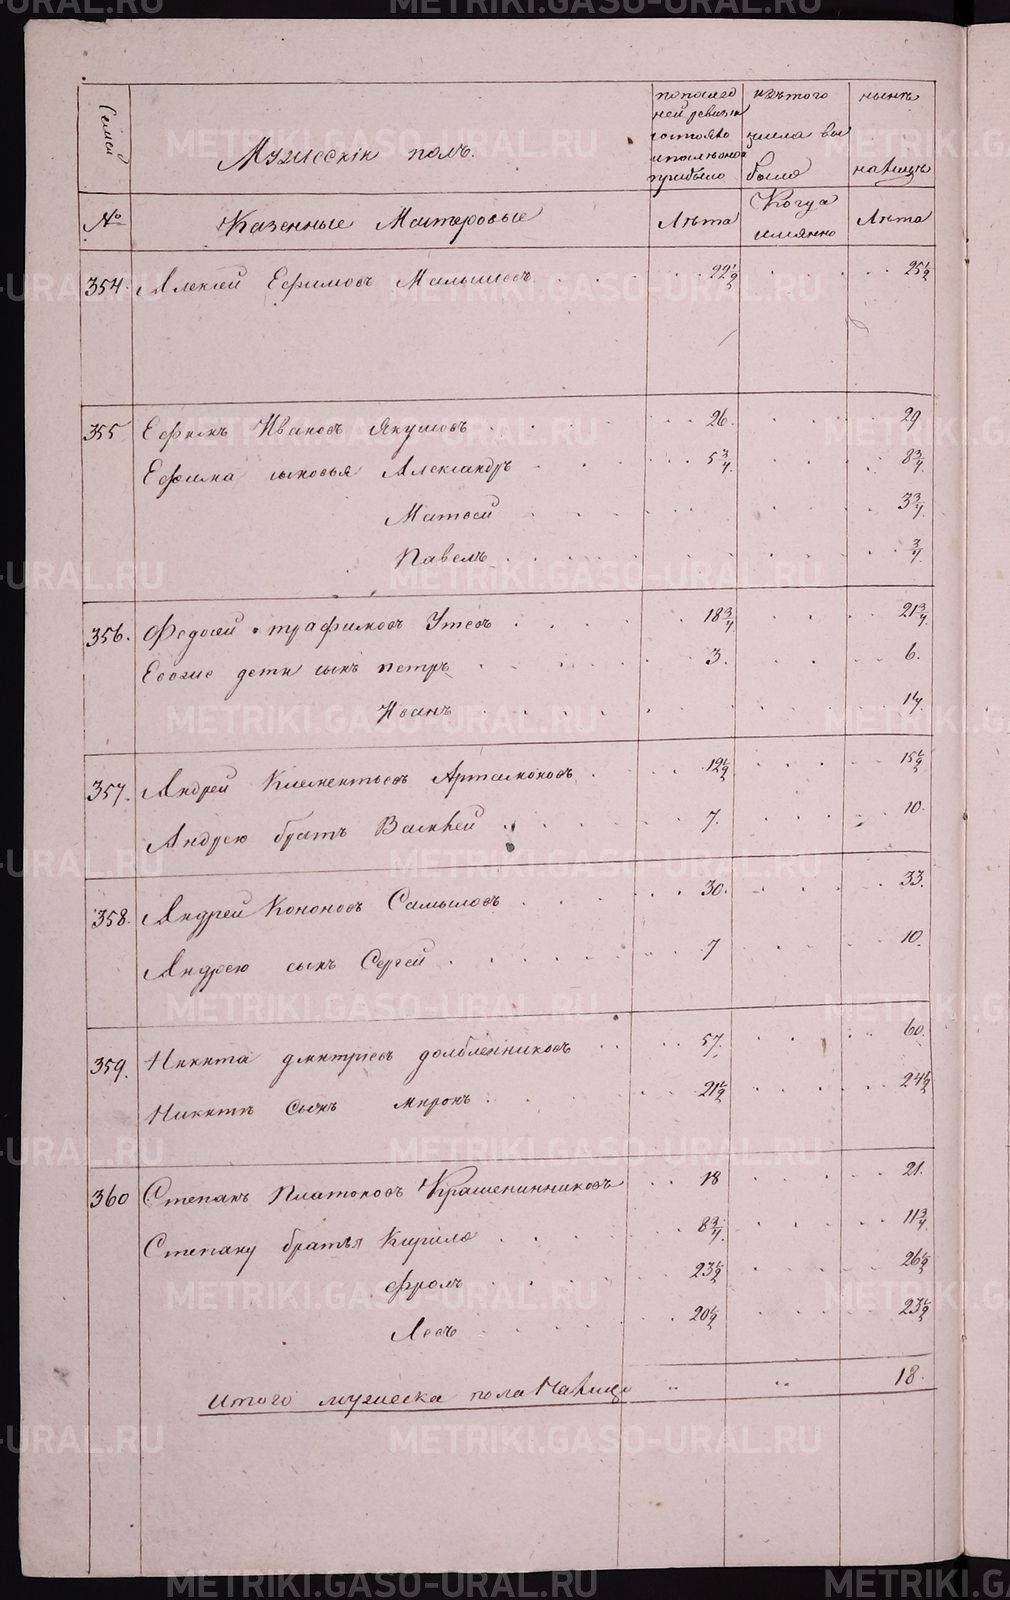 Семей
Мужескій полъ.
по послед
ней ревизіи
состояло
и после оной
прибыло
изъ того
числа вы
было
ныне
на лицо
№
Казенные Мастеровые
Лѣта
Когда
имянно
Лѣта
354. Алексей Ефимовъ Малышевъ 22½ 25½
355 Ефимъ Ивановъ Якушовъ 26. 29
Ефима сыновья Александръ 5¾ 8¾
Матвей 3¾
Павелъ ¾
356. Федосей трафимовъ Утевъ 18¾ 21¾
Евоже дети сынъ петръ 3. 6.
Иванъ 1½
357. Андрей Клементьевъ Артамоновъ 12½ 15½
Андрею братъ Василей 7. 10.
358. Андрей Кононовъ Самыловъ 30. 33.
Андрею сынъ Сергей 7 10.
359. Никита дмитріевъ долбленниковъ 57. 60.
Никите сынъ миронъ 21½ 24½
360 Степанъ Платоновъ Крашенинниковъ 18 21.
Степану братья Кирило 8¾ 11¾
Фролъ 23½ 26½
Левъ 20½ 23½
Итого мужеска пола На лицо " " 18.
METRIKI.GASO-URAL.RU